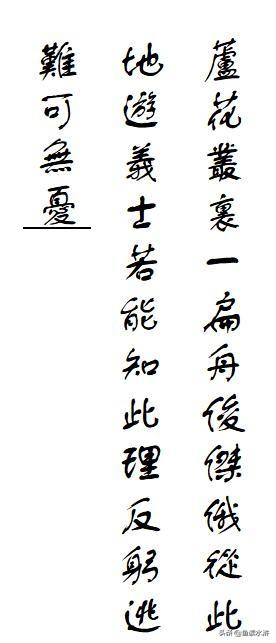 蘆花叢裏一扁舟俊傑俄從此
地遊義士若能知此理反躬逃
難可無憂